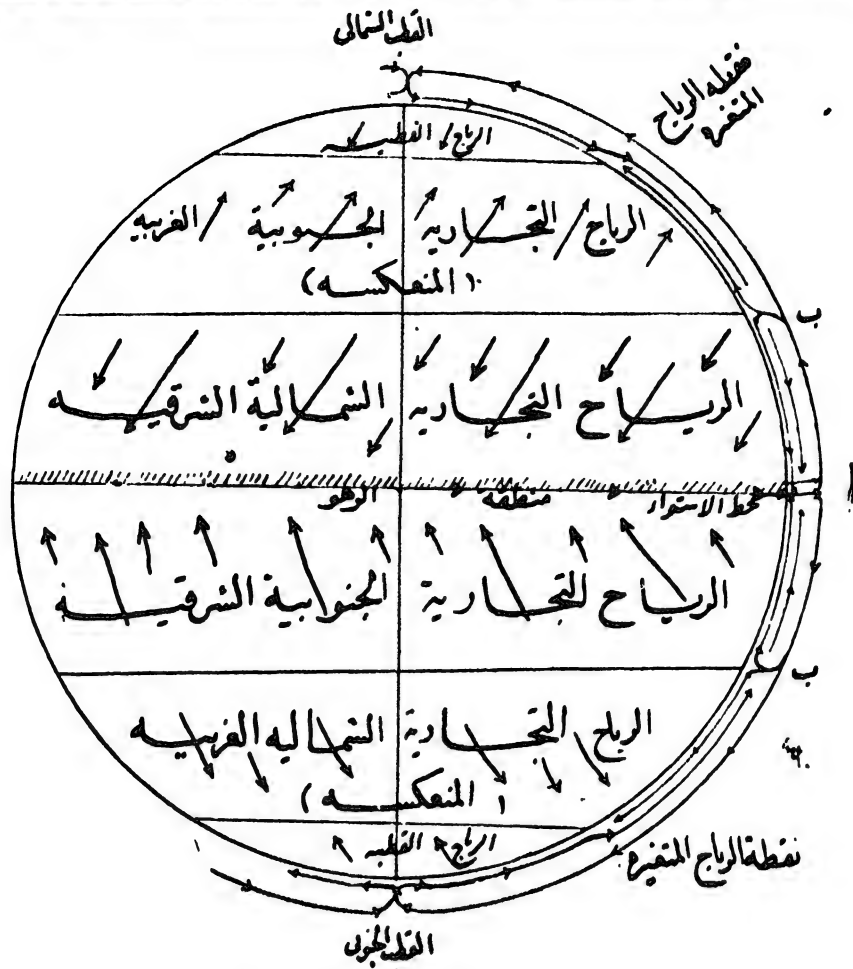 القطب الشمالى
نقطه الرياح
المتغيره
الرياح القطبيه
الرياح التجاريه الجنوبية الغربيه
( المنعكسه )
ب
الرياح التجاريه الشمالية الشرقيه
خط الاستواء منطقه الرهو
الرياح التجارية الجنوبية الشرقيه
ب
الرياح التجارية الشماليه الغربيه
( المنعكسه )
الرياح القطبيه
نقطة الرياح المتغيره
القطب الجنوبى